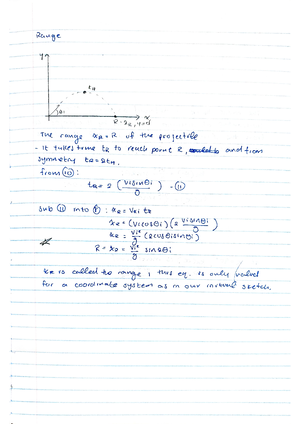 Range
y
x
R
The range xR = R of the projectile
- It takes time tR to reach point R, and from
symmetry tR = 2tH.
from (10):
tR = 2 (vi sinθi / g) - (11)
sub (11) into : xR = Vxi tR
xR = (vi cosθi)(2 vi sinθi / g)
xR = vi² / g (2 cosθi sinθi)
R = xR = vi² / g sin2θi
xR is called the range, this eq. is only valid
for a coordinate system as in our initial sketch.